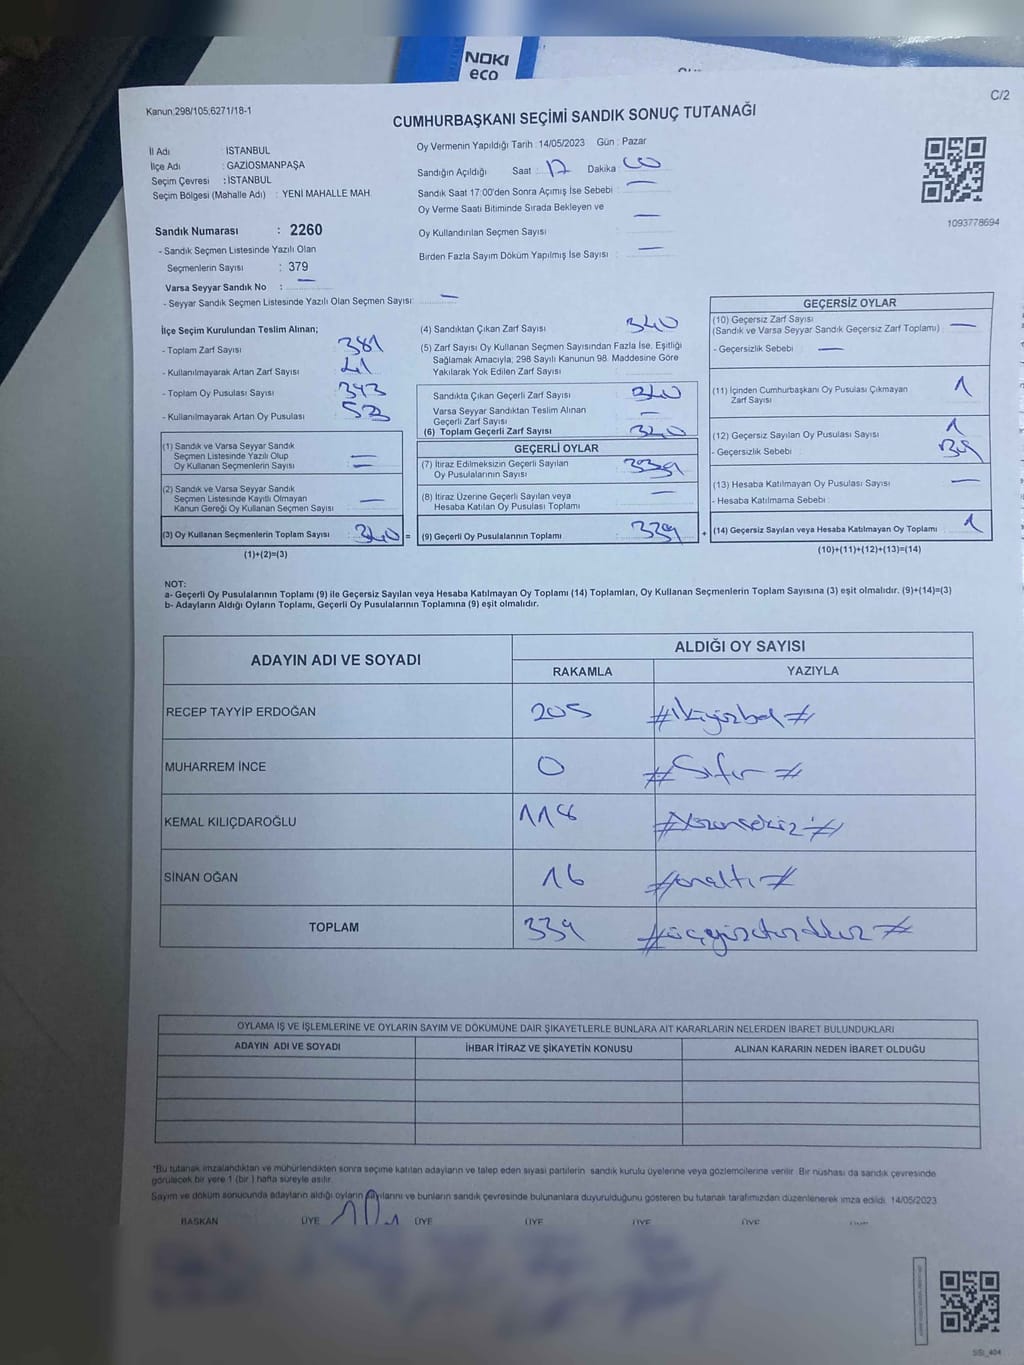 NOKI
eco
C/2
Kanun:298/105;6271/18-1
CUMHURBAŞKANI SEÇİMİ SANDIK SONUÇ TUTANAĞI
İl Adı : İSTANBUL
İlçe Adı : GAZİOSMANPAŞA
Seçim Çevresi : İSTANBUL
Seçim Bölgesi (Mahalle Adı) : YENİ MAHALLE MAH.
Oy Vermenin Yapıldığı Tarih : 14/05/2023 Gün : Pazar
Sandığın Açıldığı Saat : 17 Dakika : 00
Sandık Saat 17:00'den Sonra Açımış İse Sebebi : —
Oy Verme Saati Bitiminde Sırada Bekleyen ve
Oy Kullandırılan Seçmen Sayısı : —
Birden Fazla Sayım Döküm Yapılmış İse Sayısı : —
1093778694
Sandık Numarası : 2260
- Sandık Seçmen Listesinde Yazılı Olan
Seçmenlerin Sayısı : 379
Varsa Seyyar Sandık No : —
- Seyyar Sandık Seçmen Listesinde Yazılı Olan Seçmen Sayısı: —
İlçe Seçim Kurulundan Teslim Alınan;
- Toplam Zarf Sayısı 381
- Kullanılmayarak Artan Zarf Sayısı 41
- Toplam Oy Pusulası Sayısı 393
- Kullanılmayarak Artan Oy Pusulası 53
(1) Sandık ve Varsa Seyyar Sandık
Seçmen Listesinde Yazılı Olup
Oy Kullanan Seçmenlerin Sayısı
(2) Sandık ve Varsa Seyyar Sandık
Seçmen Listesinde Kayıtlı Olmayan
Kanun Gereği Oy Kullanan Seçmen Sayısı —
(3) Oy Kullanan Seçmenlerin Toplam Sayısı 340 =
(1)+(2)=(3)
(4) Sandıktan Çıkan Zarf Sayısı 340
(5) Zarf Sayısı Oy Kullanan Seçmen Sayısından Fazla İse, Eşitliği
Sağlamak Amacıyla; 298 Sayılı Kanunun 98. Maddesine Göre
Yakılarak Yok Edilen Zarf Sayısı
Sandıkta Çıkan Geçerli Zarf Sayısı 340
Varsa Seyyar Sandıktan Teslim Alınan
Geçerli Zarf Sayısı —
(6) Toplam Geçerli Zarf Sayısı 340
GEÇERLİ OYLAR
(7) İtiraz Edilmeksizin Geçerli Sayılan
Oy Pusulalarının Sayısı 339
(8) İtiraz Üzerine Geçerli Sayılan veya
Hesaba Katılan Oy Pusulası Toplamı —
(9) Geçerli Oy Pusulalarının Toplamı 339 +
GEÇERSİZ OYLAR
(10) Geçersiz Zarf Sayısı
(Sandık ve Varsa Seyyar Sandık Geçersiz Zarf Toplamı) : —
- Geçersizlik Sebebi : —
(11) İçinden Cumhurbaşkanı Oy Pusulası Çıkmayan
Zarf Sayısı 1
(12) Geçersiz Sayılan Oy Pusulası Sayısı 1
- Geçersizlik Sebebi :
(13) Hesaba Katılmayan Oy Pusulası Sayısı —
- Hesaba Katılmama Sebebi :
(14) Geçersiz Sayılan veya Hesaba Katılmayan Oy Toplamı 1
(10)+(11)+(12)+(13)=(14)
NOT:
a- Geçerli Oy Pusulalarının Toplamı (9) ile Geçersiz Sayılan veya Hesaba Katılmayan Oy Toplamı (14) Toplamları, Oy Kullanan Seçmenlerin Toplam Sayısına (3) eşit olmalıdır. (9)+(14)=(3)
b- Adayların Aldığı Oyların Toplamı, Geçerli Oy Pusulalarının Toplamına (9) eşit olmalıdır.
ADAYIN ADI VE SOYADI
ALDIĞI OY SAYISI
RAKAMLA YAZIYLA
RECEP TAYYİP ERDOĞAN 205 #ikiyüzbeş#
MUHARREM İNCE 0 #Sıfır#
KEMAL KILIÇDAROĞLU 118 #Yüzonsekiz#
SİNAN OĞAN 16 #onaltı#
TOPLAM 339 #üçyüzotuzdokuz#
OYLAMA İŞ VE İŞLEMLERİNE VE OYLARIN SAYIM VE DÖKÜMÜNE DAİR ŞİKAYETLERLE BUNLARA AİT KARARLARIN NELERDEN İBARET BULUNDUKLARI
ADAYIN ADI VE SOYADI İHBAR İTİRAZ VE ŞİKAYETİN KONUSU ALINAN KARARIN NEDEN İBARET OLDUĞU
*Bu tutanak imzalandıktan ve mühürlendikten sonra seçime katılan adayların ve talep eden siyasi partilerin sandık kurulu üyelerine veya gözlemcilerine verilir. Bir nüshası da sandık çevresinde
görülecek bir yere 1 (bir ) hafta süreyle asılır.
Sayım ve döküm sonucunda adayların aldığı oyların sayılarını ve bunların sandık çevresinde bulunanlara duyurulduğunu gösteren bu tutanak tarafımızdan düzenlenerek imza edildi. 14/05/2023
BAŞKAN ÜYE ÜYE ÜYE ÜYE ÜYE